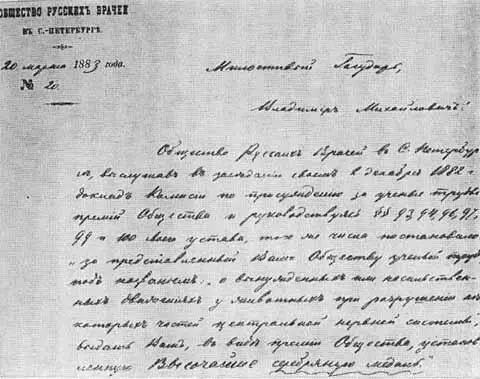 ОБЩЕСТВО РУССКИХЪ ВРАЧЕЙ
ВЪ С.-ПЕТЕРБУРГѢ.
20 марта 1883 года.
№ 20.
Милостивый Государь,
Владиміръ Михайловичъ!
Общество Русскихъ Врачей въ С. Петербур
гѣ, выслушавъ въ засѣданіи своемъ в декабря 1882 г.
докладъ Комисіи по присужденію за ученые труды
премій Общества и руководствуясь §§ 93, 94, 96, 97,
99 и 100 своего устава, того же числа постановило
„за представленный Вами Обществу ученый трудъ
подъ названіемъ „о вынужденныхъ или насильствен-
ныхъ движеніяхъ у животныхъ при разрушеніи нѣ
которыхъ частей центральной нервной системы",
выдать Вамъ, въ видѣ преміи Общества, установ
ленную Высочайше серебряную медаль".